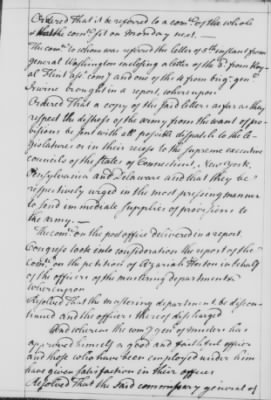 Ordered That it be referred to a com.ee of the whole
& that the com.ee sit on Monday next. —
The com.ee to whom was referred the letter of 5th instant from
general Washington inclosing a letter of the 3d from Roy-
al Flint ass.t com.y and one of the 4 from brig.r gen.l
Irvine brought in a report, whereupon
Ordered That a copy of the said letters as far as they
respect the distress of the army from the want of pro-
visions be sent with all possible despatch to the le-
gislatures or in their recess to the supreme executive
councils of the states of Connecticut, New York,
Pensylvania and Delaware and that they be
respectively urged in the most pressing manner
to send immediate supplies of provisions to
the army. —
The com.ee on the post office delivered in a report
Congress took into consideration the report of the
com.ee on the petition of Azariah Horton in behalf
of the officers of the mustering department &
whereupon
Resolved That the mustering department be discon-
tinued and the officers thereof discharged
And whereas the com.y gen.l of musters has
approved himself a good and faithful officer
and those who have been employed under him
have given satisfaction in their offices
Resolved That the said commissary general of